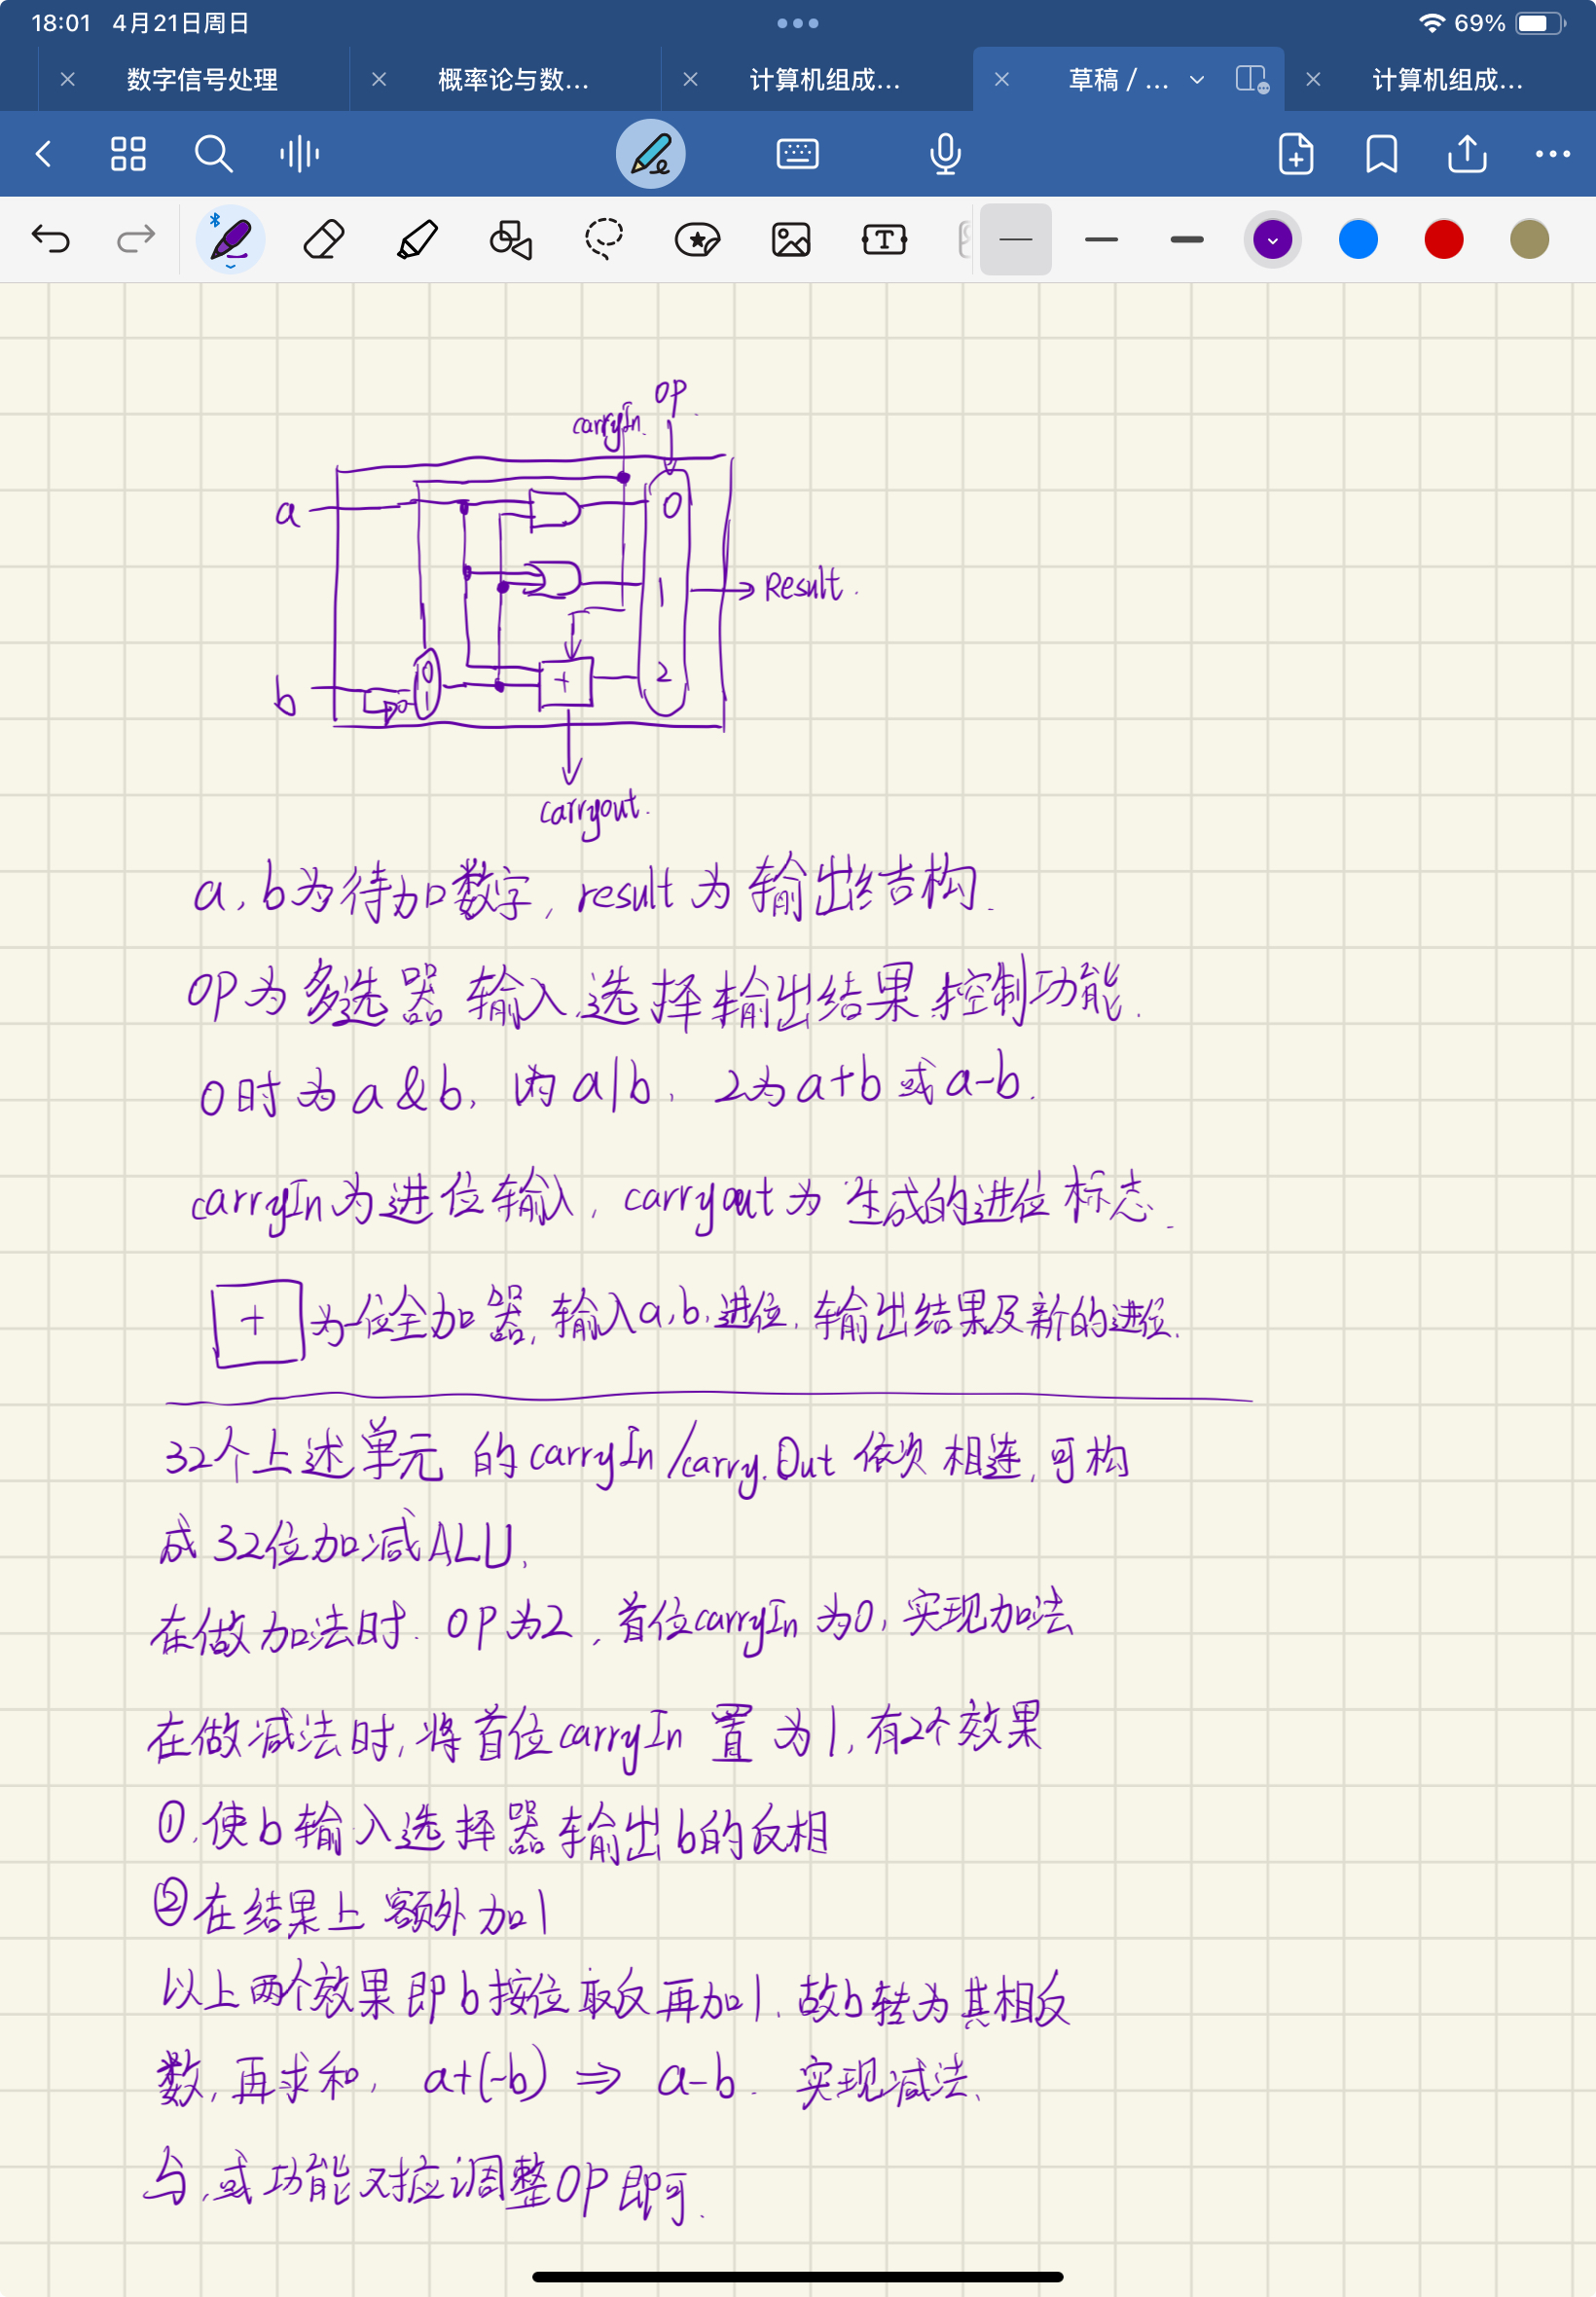 18:01 4月21日周日
69%
数字信号处理
概率论与数...
计算机组成...
草稿 / ...
计算机组成...
OP.
carryIn.
a
0
1
Result.
2
b
0
1
+
carryout.
a, b为待加数字, result为输出结构.
OP为多选器输入,选择输出结果.控制功能.
0时为a&b, 1为a|b, 2为a+b或a-b.
carryIn为进位输入, carryout为生成的进位标志.
+ 为一位全加器, 输入a,b,进位, 输出结果及新的进位.
32个上述单元的carryIn/carry.Out依次相连,可构
成32位加减ALU.
在做加法时. OP为2, 首位carryIn为0, 实现加法
在做减法时, 将首位carryIn置为1, 有2个效果
①.使b输入选择器输出b的反相
②在结果上额外加1
以上两个效果即b按位取反再加1. 故b转为其相反
数, 再求和, a+(-b) ⇒ a-b. 实现减法.
与,或功能对应调整OP即可.